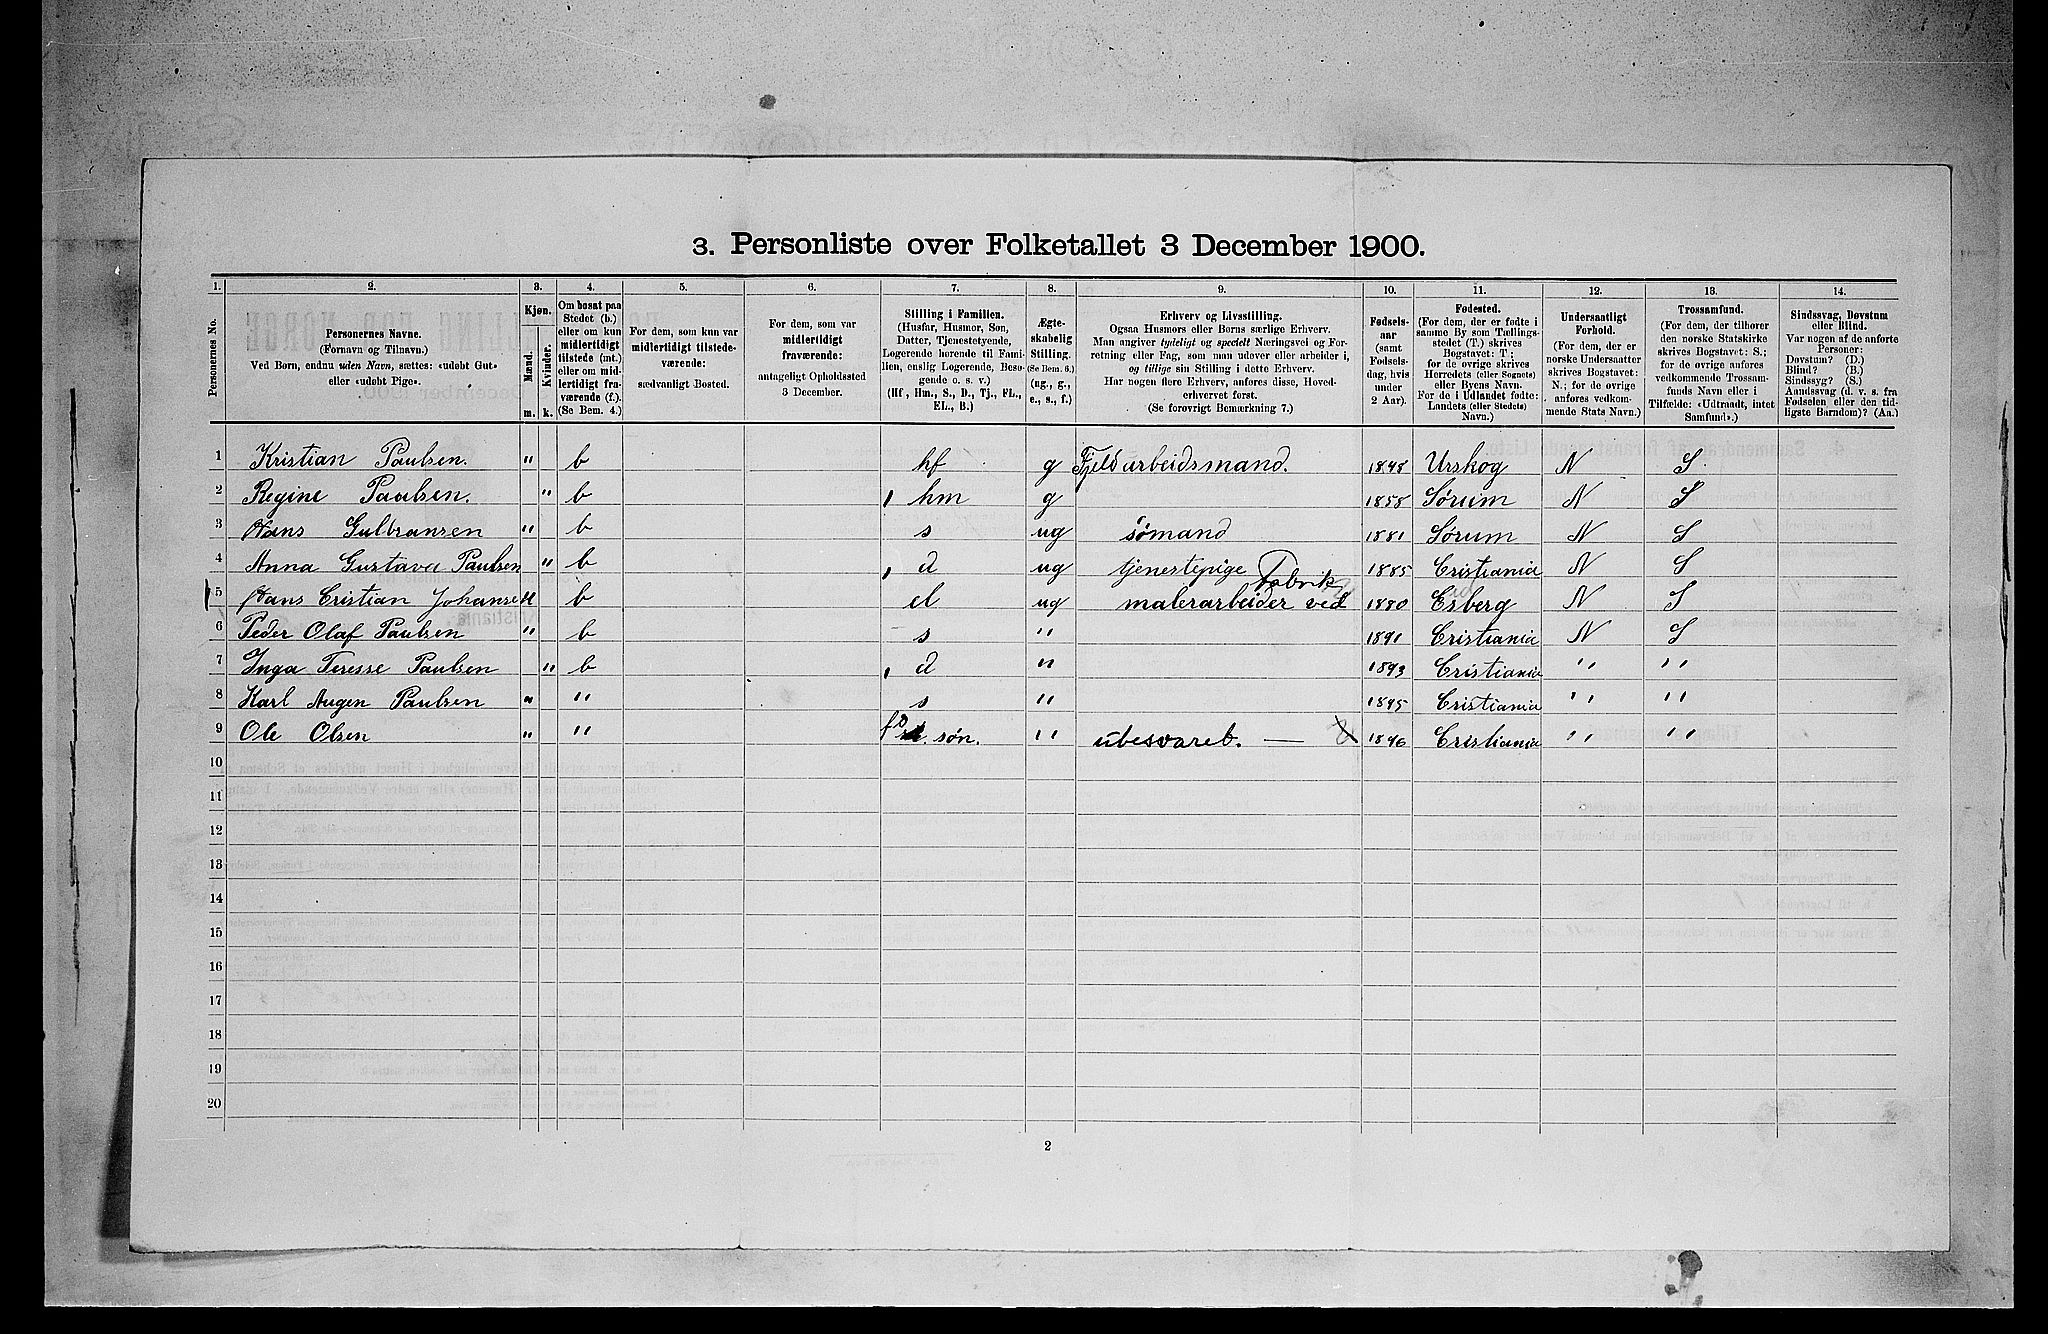 3. Personliste over Folketallet 3 December 1900.
1. 2. 3. 4. 5. 6. 7. 8. 9. 10. 11. 12. 13. 14.
Personernes No.
Personernes Navne.
(Fornavn og Tilnavn.)
Ved Børn, endnu uden Navn, sættes: «udøbt Gut»
eller «udøbt Pige».
Kjøn.
Mænd. Kvinder.
m. k.
Om bosat paa
Stedet (b.)
eller om kun
midlertidigt
tilstede (mt.)
eller om mid-
lertidigt fra-
værende (f.).
(Se Bem. 4.)
For dem, som kun var
midlertidigt tilstede-
værende:
sædvanligt Bosted.
For dem, som var
midlertidigt
fraværende:
antageligt Opholdssted
3 December.
Stilling i Familien.
(Husfar, Husmor, Søn,
Datter, Tjenestetyende,
Logerende hørende til Fami-
lien, enslig Logerende, Besø-
gende o. s. v.)
(Hf., Hm., S., D., Tj., FL.,
EL., B.)
Ægte-
skabelig
Stilling.
(Se Bem. 6.)
(ug., g.,
e., s., f.)
Erhverv og Livsstilling.
Ogsaa Husmors eller Børns særlige Erhverv.
Man angiver tydeligt og specielt Næringsvei og For-
retning eller Fag, som man udøver eller arbeider i,
og tillige sin Stilling i dette Erhverv.
Har nogen flere Erhverv, anføres disse, Hoved-
erhvervet først.
(Se forøvrigt Bemærkning 7.)
Fødsels-
aar
(samt
Fødsels-
dag, hvis
under
2 Aar).
Fødested.
(For dem, der er fødte i
samme By som Tællings-
stedet (T.) skrives
Bogstavet: T;
for de øvrige skrives
Herredets (eller Sognets)
eller Byens Navn.
For de i Udlandet fødte:
Landets (eller Stedets)
Navn.)
Undersaatligt
Forhold.
(For dem, der er
norske Undersaatter
skrives Bogstavet:
N.; for de øvrige
anføres vedkom-
mende Stats Navn.)
Trossamfund.
(For dem, der tilhører
den norske Statskirke
skrives Bogstavet: S.;
for de øvrige anføres
vedkommende Trossam-
funds Navn eller i
Tilfælde: «Udtraadt, intet
Samfund».)
Sindssvag, Døvstum
eller Blind.
Var nogen af de anførte
Personer:
Døvstum? (D.)
Blind? (B.)
Sindssyg? (S.)
Aandssvag (d. v. s. fra
Fødselen eller den tid-
ligste Barndom)? (Aa.)
1 Kristian Paulsen. " b hf g Fjeldarbeidsmand. 1848 Urskog N S
2 Regine Paulsen. " b hm g 1858 Sørum N S
3 Hans Gulbransen " b s ug sømand 1881 Sørum N S
4 Anna Gustava Paulsen " b d ug tjenestepige 1885 Cristiania N S
Fabrik
5 Hans Cristian Johansen " b el ug malerarbeider ved 1880 Esberg N S
6 Peder Olaf Paulsen " b s " 1891 Cristiania N S
7 Inga Teresse Paulsen " b d " 1893 Cristiania " "
8 Karl Augen Paulsen " " s " 1895 Cristiania " "
9 Ole Olsen " " søn. " 1896 Cristiania " "
10
11
12
13
14
15
16
17
18
19
20
2